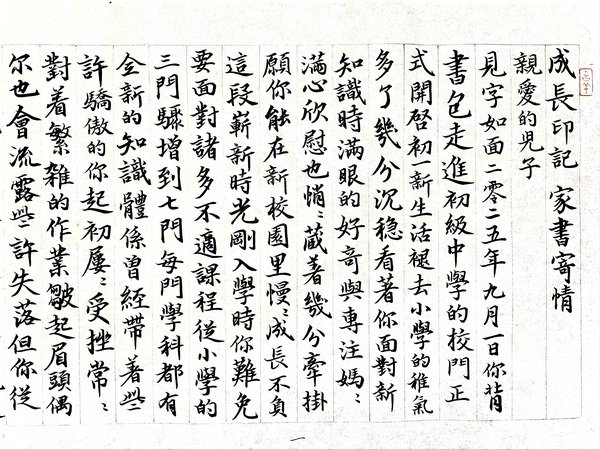 成長印記 家書寄情
親愛的兒子
見字如面二零二五年九月一日你背
書包走進初級中學的校門正
式開啓初一新生活褪去小學的稚氣
多了幾分沉稳看著你面對新
知識時滿眼的好奇與專注媽〻
滿心欣慰也悄〻蔵著幾分牽掛
願你能在新校園里慢〻成長不負
這段嶄新時光剛入學時你難免
要面對諸多不適課程從小學的
三門驟增到七門每門學科都有
全新的知識體係曾經帶著些
許驕傲的你起初屡〻受挫常〻
對着繁雑的作業皺起眉頭偶
尔也會流露些許失落但你從
一